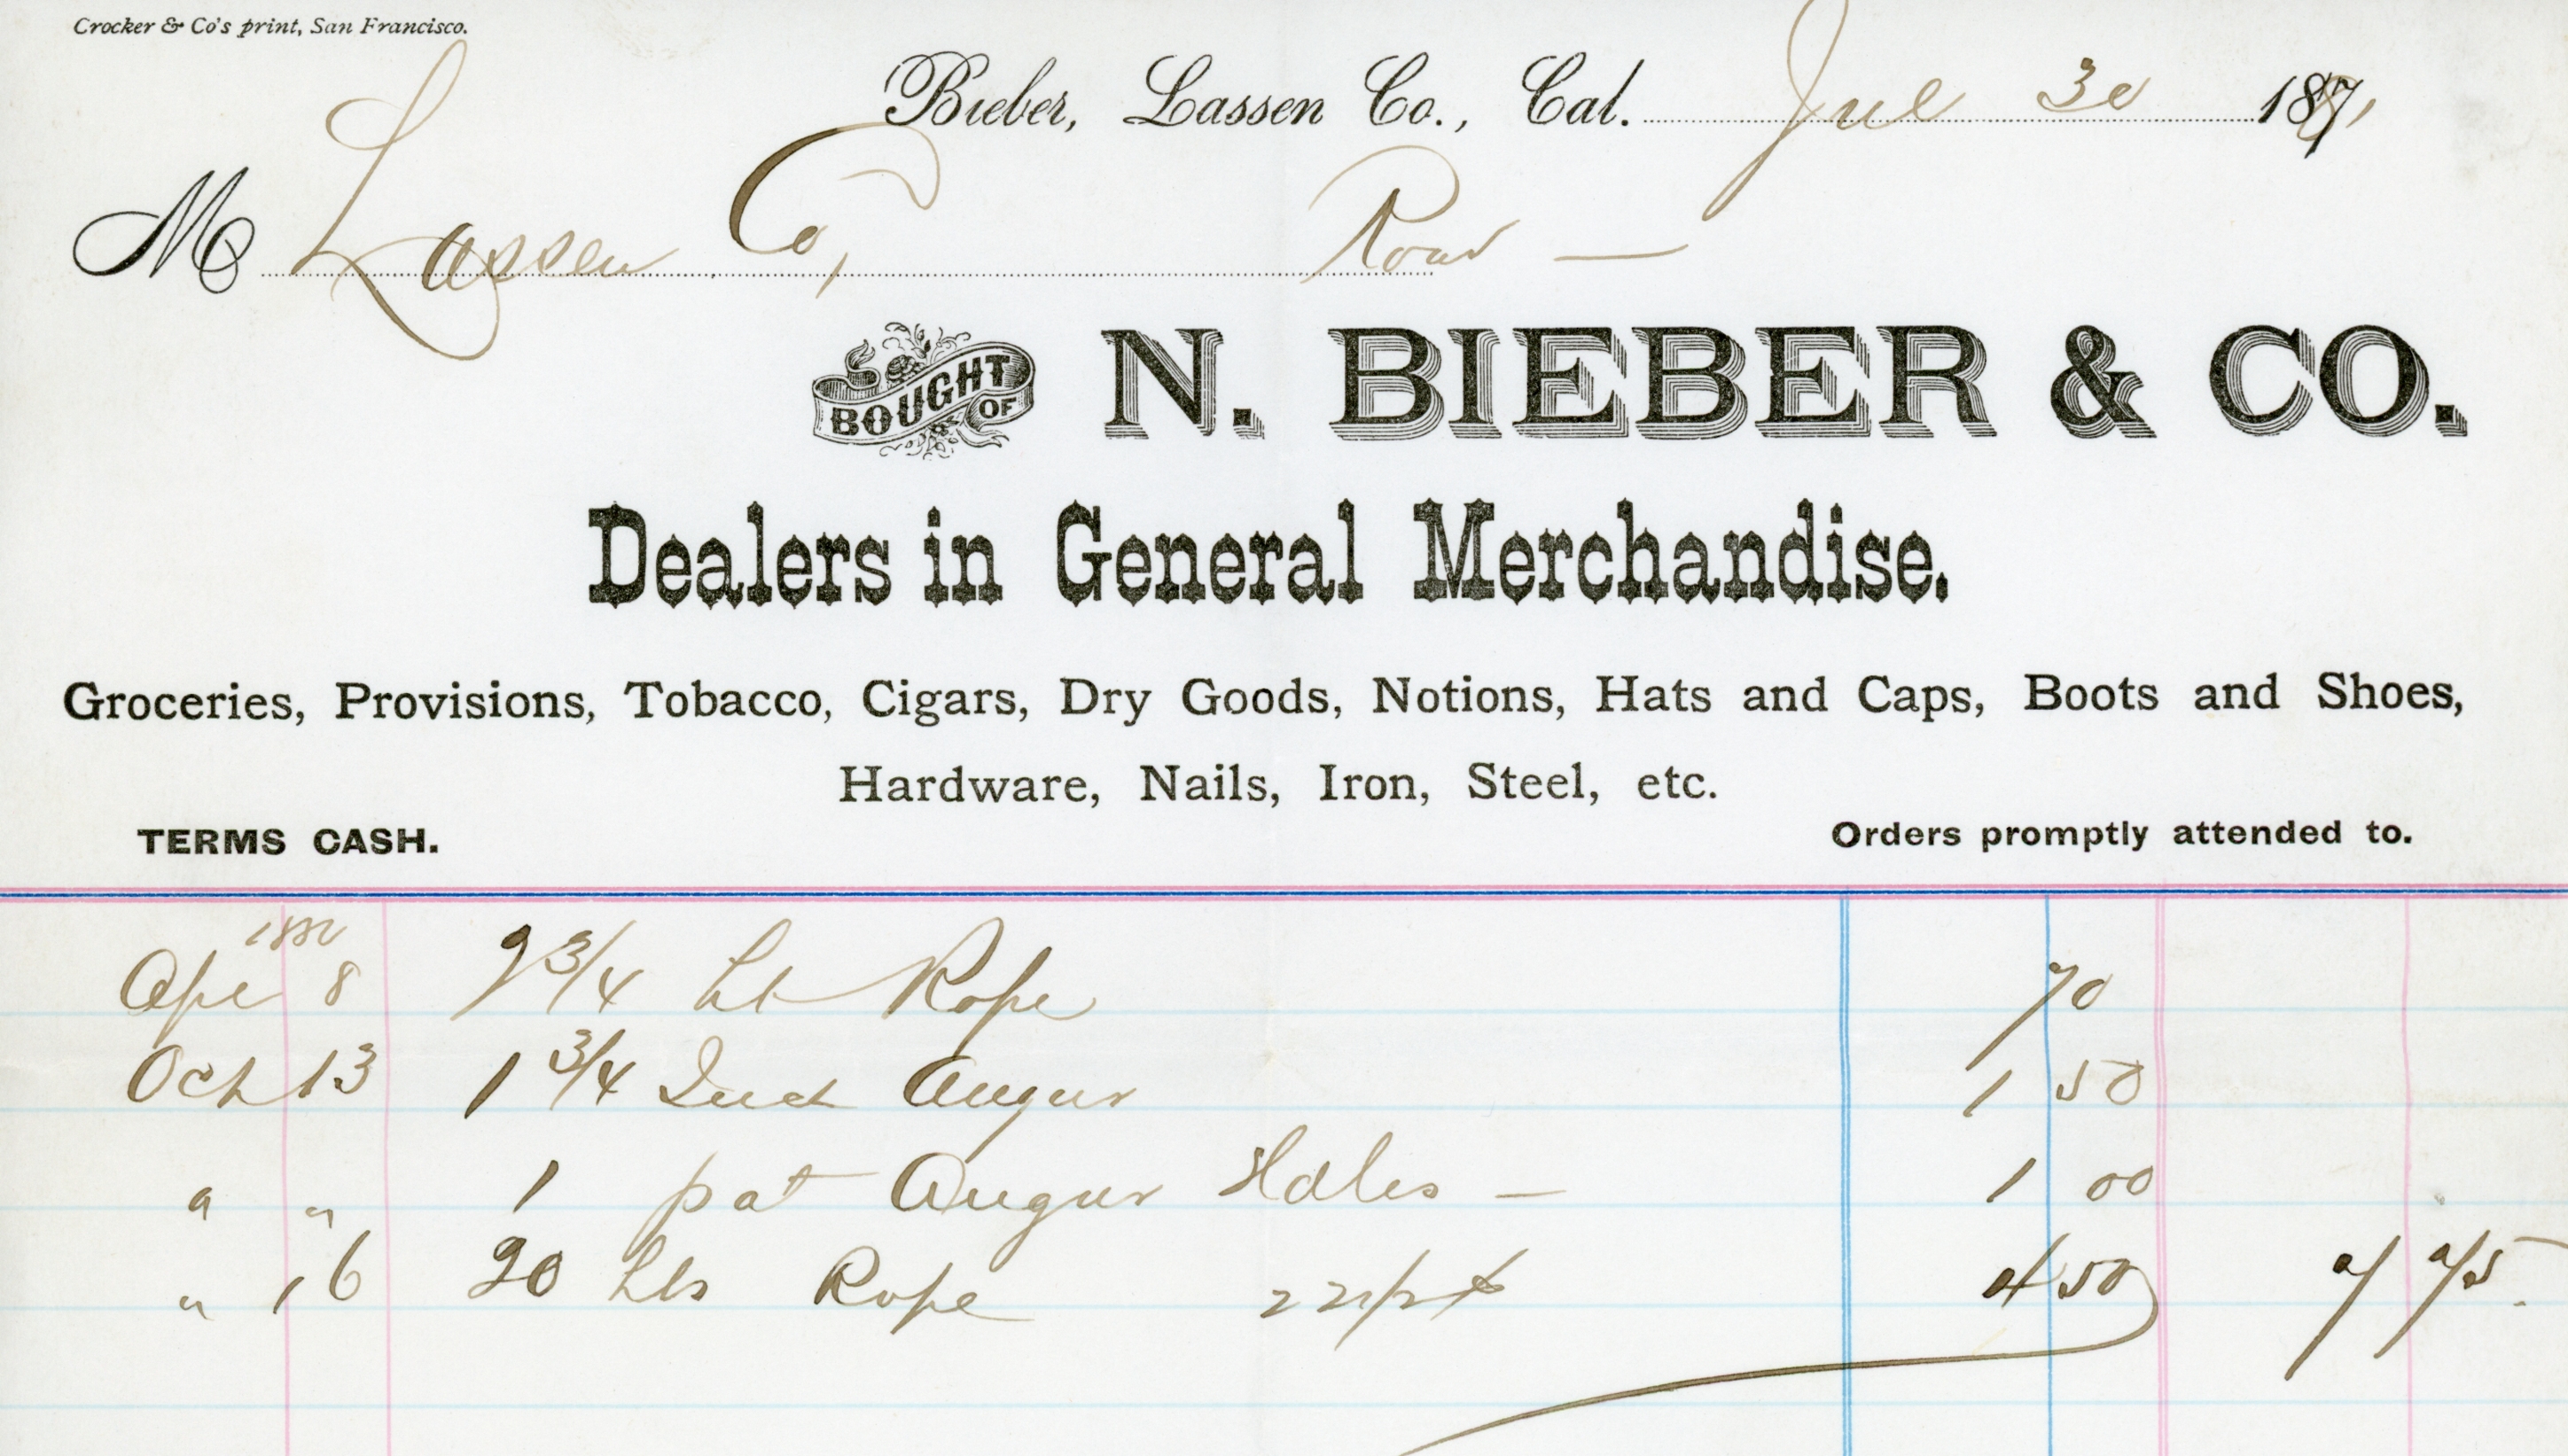 Crocker & Co's print, San Francisco.
Bieber, Lassen Co., Cal. Jul 30 188
M Lassen Co, Road —
BOUGHT OF N. BIEBER & CO.
Dealers in General Merchandise.
Groceries, Provisions, Tobacco, Cigars, Dry Goods, Notions, Hats and Caps, Boots and Shoes,
Hardware, Nails, Iron, Steel, etc.
TERMS CASH. Orders promptly attended to.
188
Apl 8 3/4 Rope 70
Oct 13 1 3/4 Inch Augur 1 50
" " 1 pat Augur Hdles — 1 00
" 16 20 lbs Rope 22 1/2 ¢ 4 50 7 75